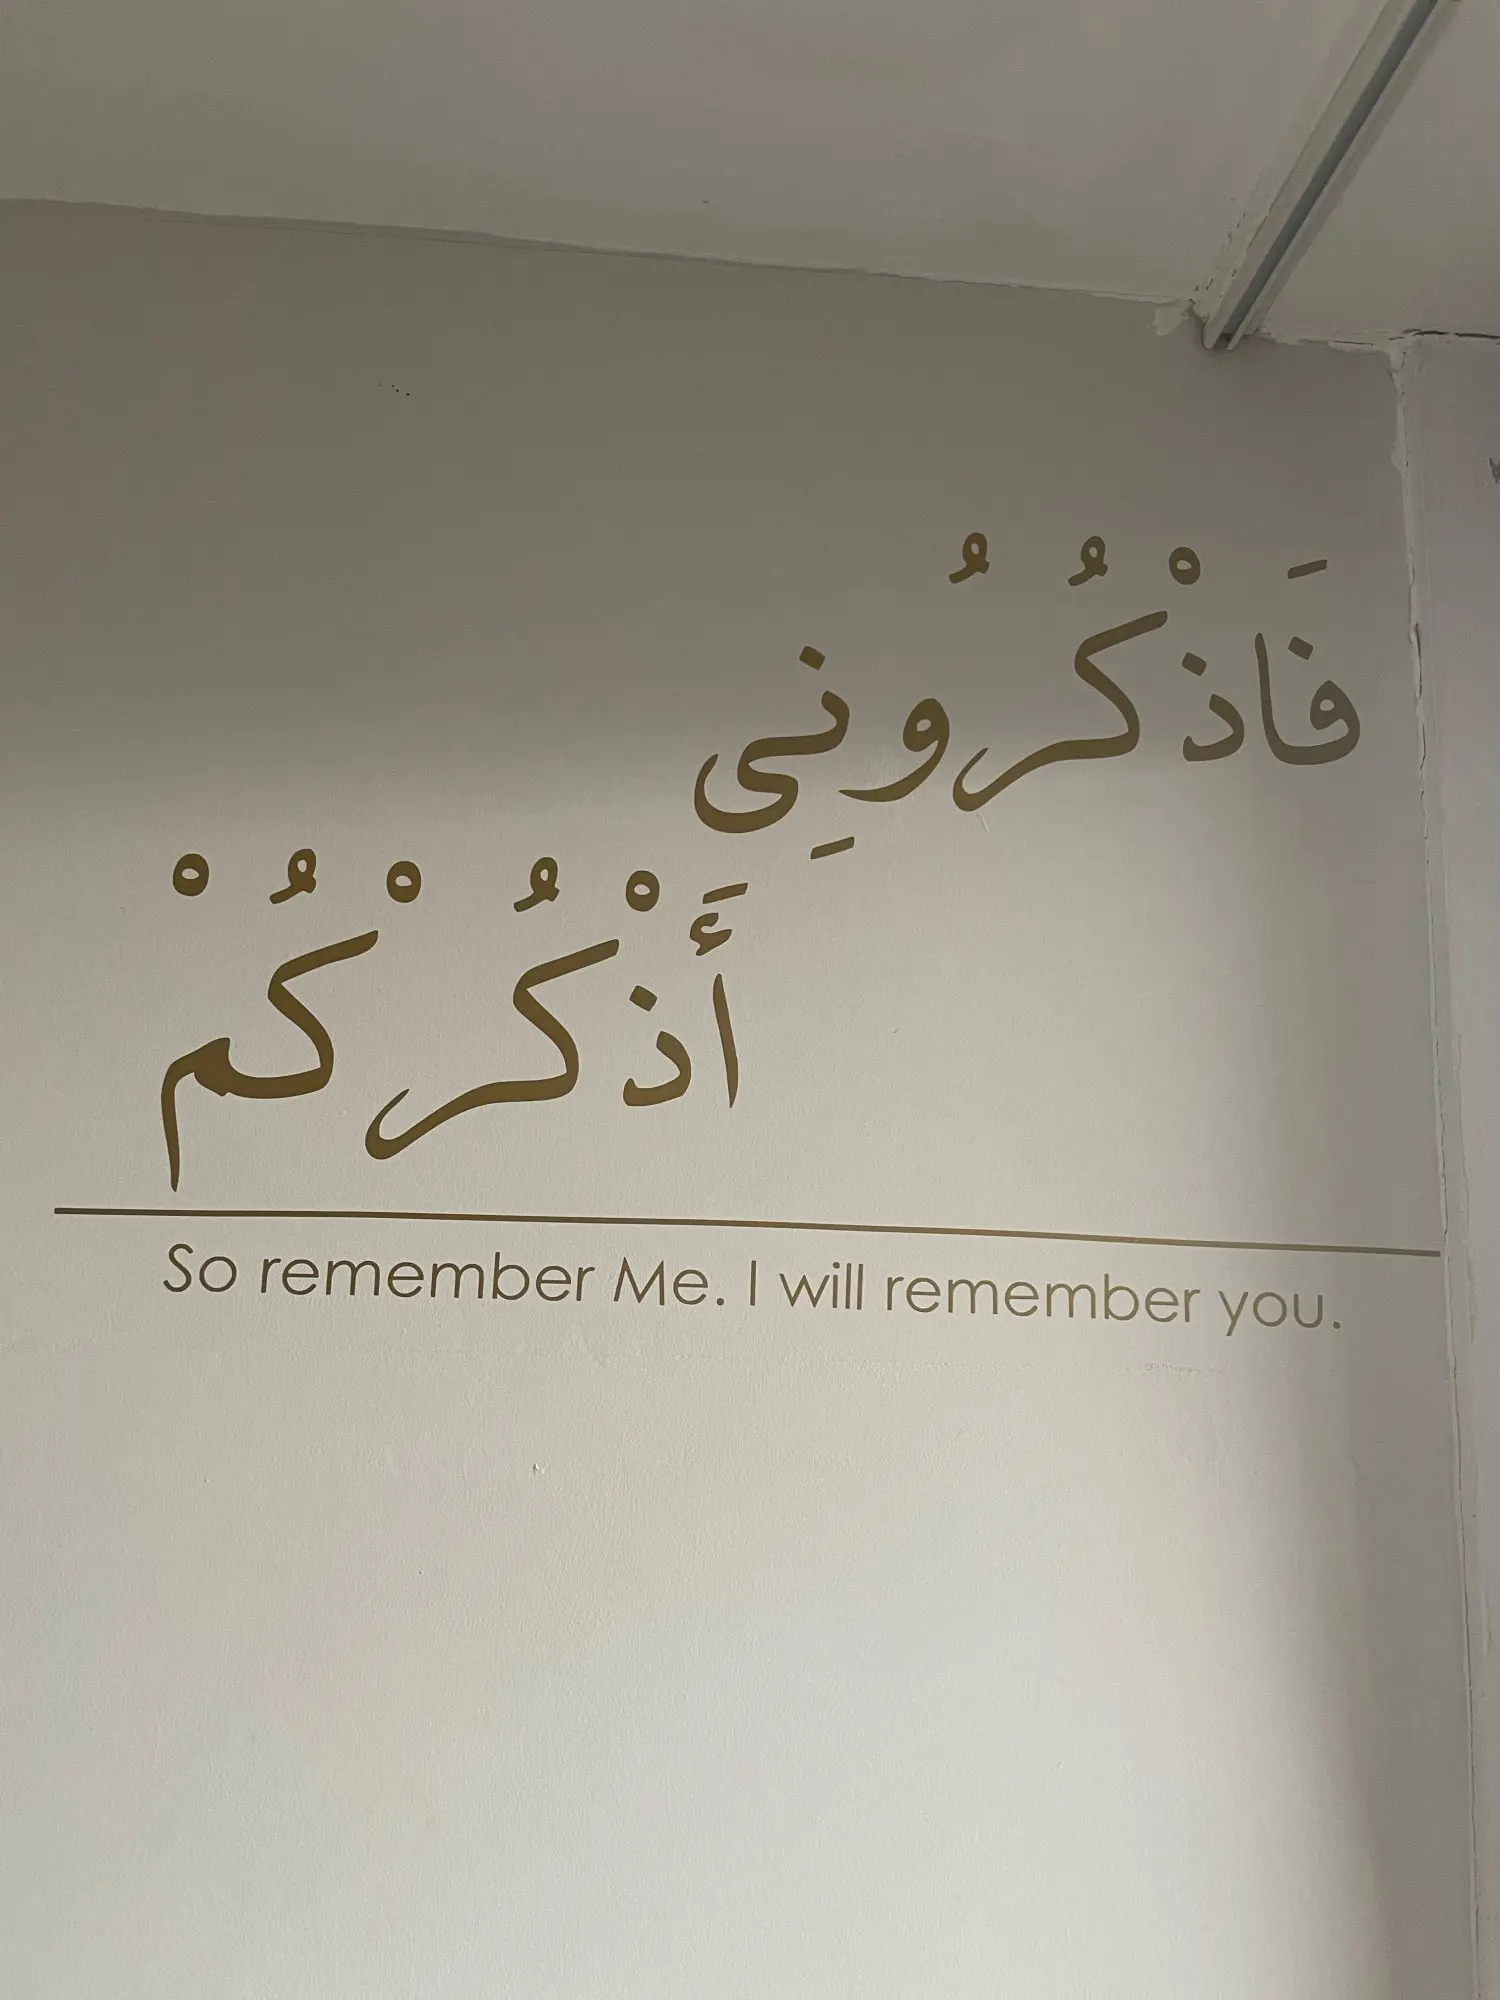 فَاذْكُرُونِي
أَذْكُرْكُمْ
So remember Me. I will remember you.